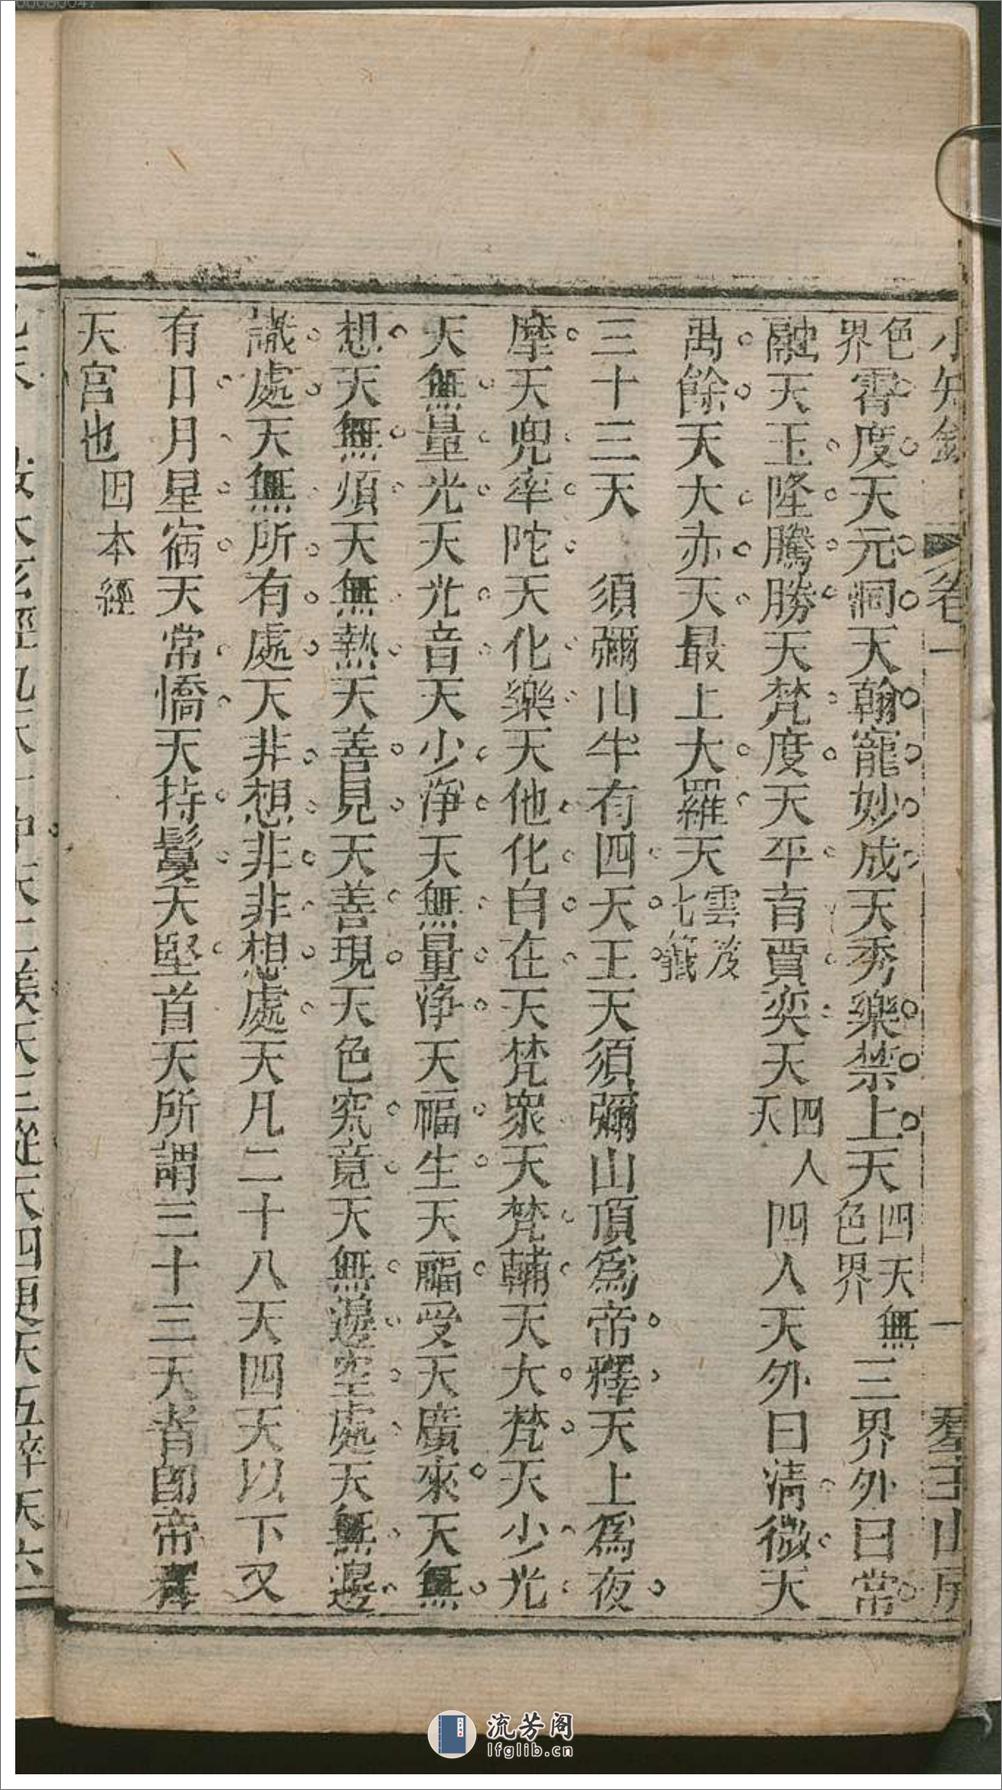 小知錄 卷一 一
色界霄度天元洞天翰寵妙成天秀樂禁上天四天無色界三界外曰常
融天玉隆騰勝天梵度天平育賈奕天四人天四人天外曰清微天
禹餘天大赤天最上大羅天雲笈七籤
三十三天 須彌山半有四天王天須彌山頂爲帝釋天上爲夜
摩天兜率陀天化樂天他化自在天梵眾天梵輔天大梵天少光
天無量光天光音天少淨天無量淨天福生天福受天廣來天無
想天無煩天無熱天善見天善現天色究竟天無邊空處天無邊
識處天無所有處天非想非非想處天凡二十八天四天以下又
有日月星宿天常憍天持鬘天堅首天所謂三十三天者卽帝釋
天宮也因本經
流芳阁
lfglib.cn